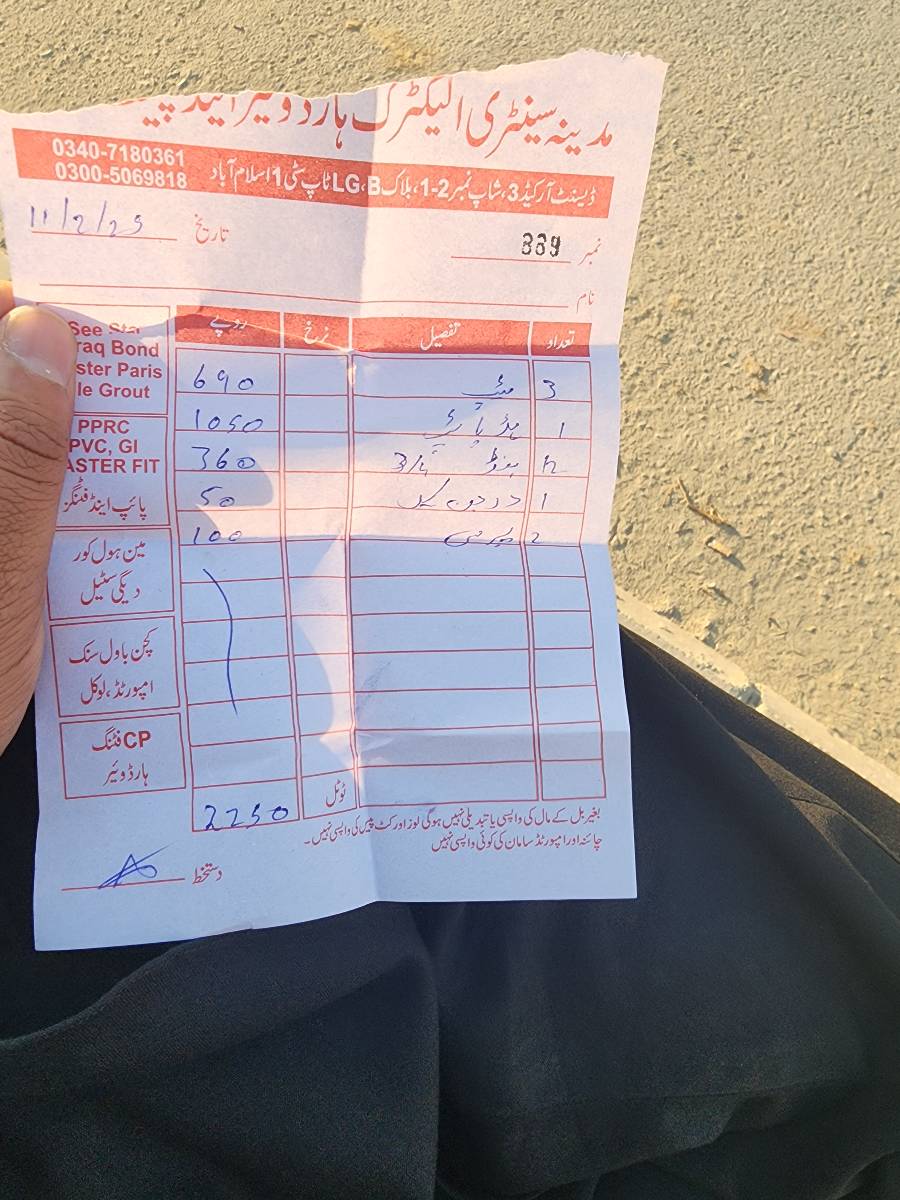 مدینہ سینٹری الیکٹرک ہارڈوئیر اینڈ پینٹ
0340-7180361
0300-5069818
ڈیسنٹ آرکیڈ 3، شاپ نمبر 2-1، بلاک LG، B ٹاپ سٹی 1 اسلام آباد
نمبر 889
تاریخ 11/2/25
نام
تعداد تفصیل نرخ روپے
3 690
1 1050
3/4 360
1 50
2 100
ٹوٹل 2250
See Sta
raq Bond
ster Paris
le Grout
PPRC
PVC, GI
ASTER FIT
پائپ اینڈ فٹنگز
مین ہول کور
دیگی سٹیل
کچن باؤل سنک
امپورٹڈ، لوکل
CP فٹنگ
ہارڈوئیر
بغیر بل کے مال کی واپسی یا تبدیلی نہیں ہوگی لوز اور کٹ پیس کی واپسی نہیں۔
چائنہ اور امپورٹڈ سامان کی کوئی واپسی نہیں
دستخط